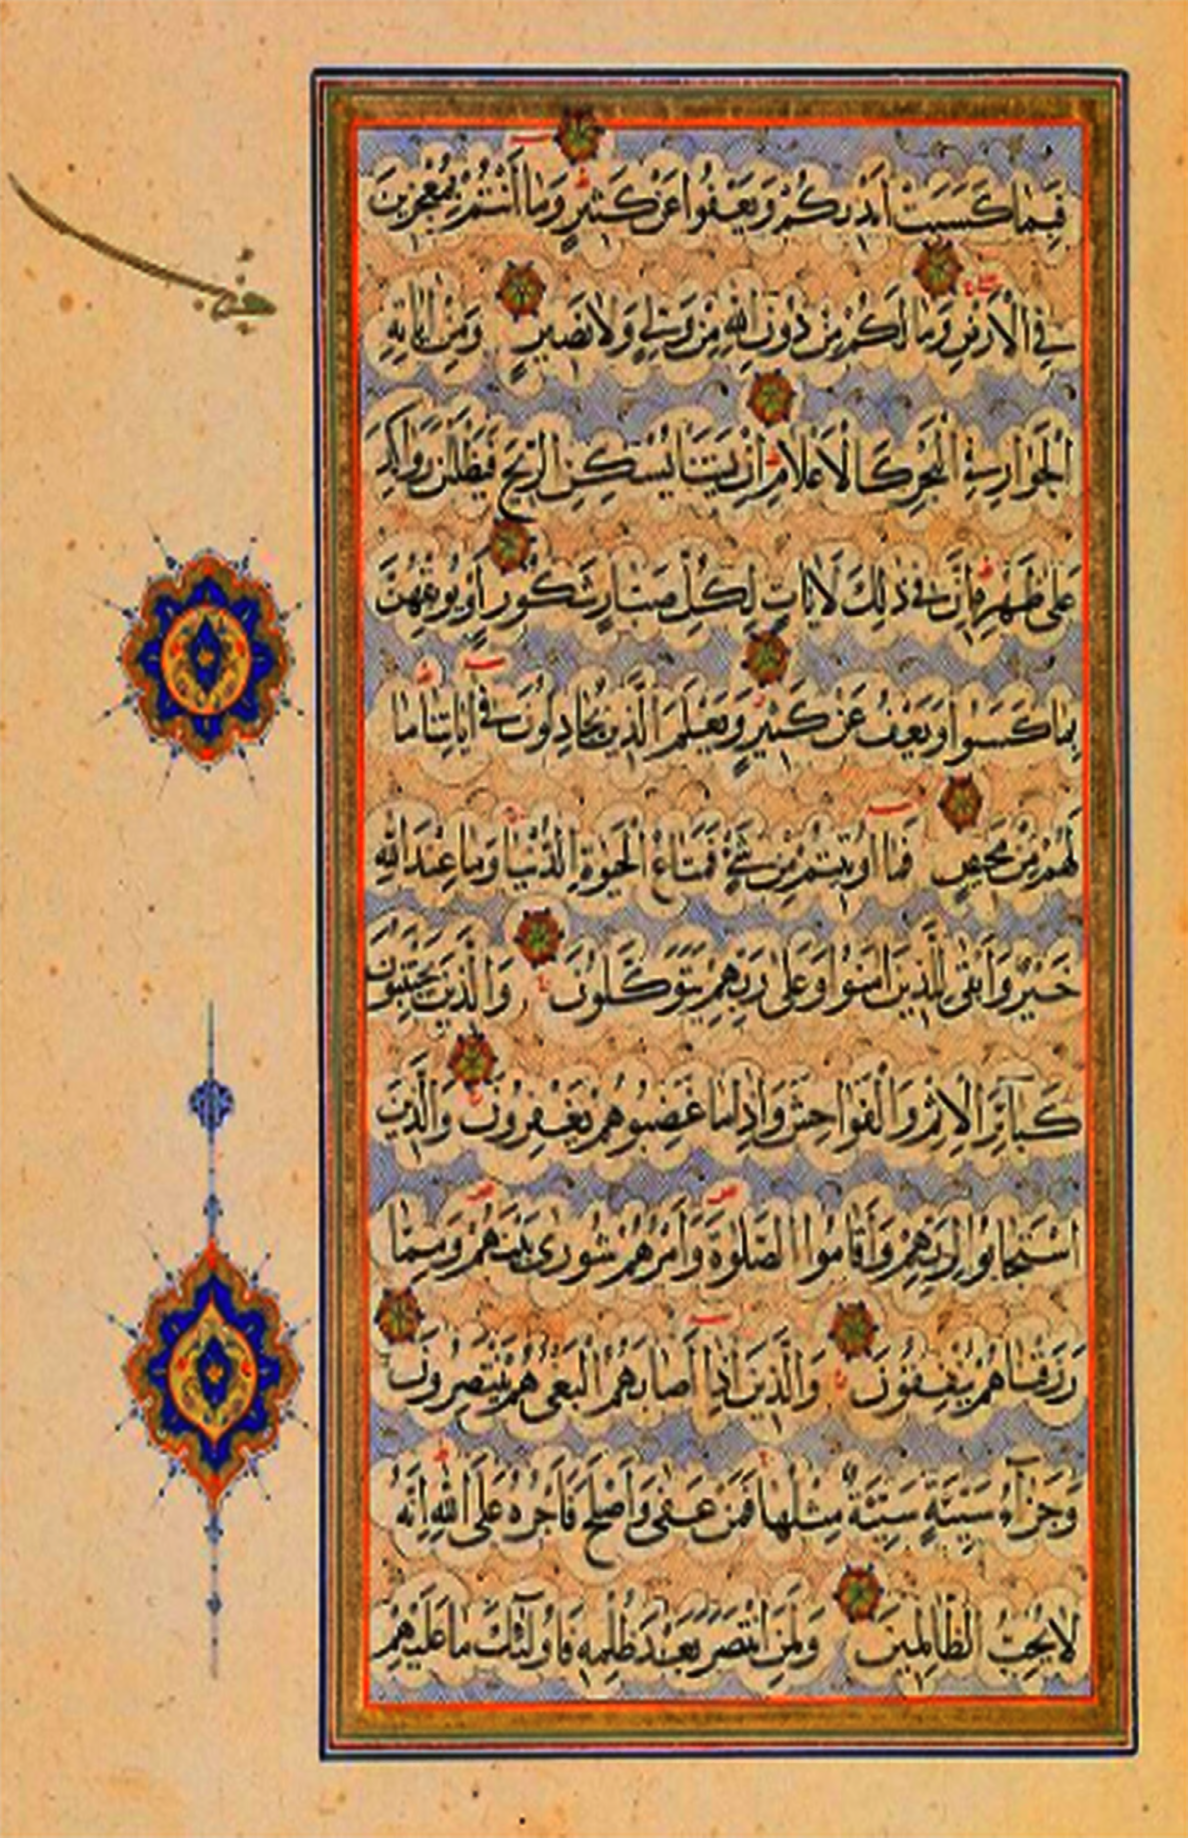 فَبِمَا كَسَبَتْ أَيْدِيكُمْ وَيَعْفُوا عَنْ كَثِيرٍ وَمَا أَنْتُمْ بِمُعْجِزِينَ
فِي الْأَرْضِ وَمَا لَكُمْ مِنْ دُونِ اللَّهِ مِنْ وَلِيٍّ وَلَا نَصِيرٍ وَمِنْ آيَاتِهِ
الْجَوَارِ فِي الْبَحْرِ كَالْأَعْلَامِ إِنْ يَشَأْ يُسْكِنِ الرِّيحَ فَيَظْلَلْنَ رَوَاكِدَ
عَلَى ظَهْرِهِ إِنَّ فِي ذَلِكَ لَآيَاتٍ لِكُلِّ صَبَّارٍ شَكُورٍ أَوْ يُوبِقْهُنَّ
بِمَا كَسَبُوا وَيَعْفُ عَنْ كَثِيرٍ وَيَعْلَمَ الَّذِينَ يُجَادِلُونَ فِي آيَاتِنَا مَا
لَهُمْ مِنْ مَحِيصٍ فَمَا أُوتِيتُمْ مِنْ شَيْءٍ فَمَتَاعُ الْحَيَوةِ الدُّنْيَا وَمَا عِنْدَ اللَّهِ
خَيْرٌ وَأَبْقَى لِلَّذِينَ آمَنُوا وَعَلَى رَبِّهِمْ يَتَوَكَّلُونَ وَالَّذِينَ يَجْتَنِبُونَ
كَبَائِرَ الْإِثْمِ وَالْفَوَاحِشَ وَإِذَا مَا غَضِبُوا هُمْ يَغْفِرُونَ وَالَّذِينَ
اسْتَجَابُوا لِرَبِّهِمْ وَأَقَامُوا الصَّلَوةَ وَأَمْرُهُمْ شُورَى بَيْنَهُمْ وَمِمَّا
رَزَقْنَاهُمْ يُنْفِقُونَ وَالَّذِينَ إِذَا أَصَابَهُمُ الْبَغْيُ هُمْ يَنْتَصِرُونَ
وَجَزَاءُ سَيِّئَةٍ سَيِّئَةٌ مِثْلُهَا فَمَنْ عَفَى وَأَصْلَحَ فَأَجْرُهُ عَلَى اللَّهِ إِنَّهُ
لَا يُحِبُّ الظَّالِمِينَ وَلَمَنِ انْتَصَرَ بَعْدَ ظُلْمِهِ فَأُولَئِكَ مَا عَلَيْهِمْ